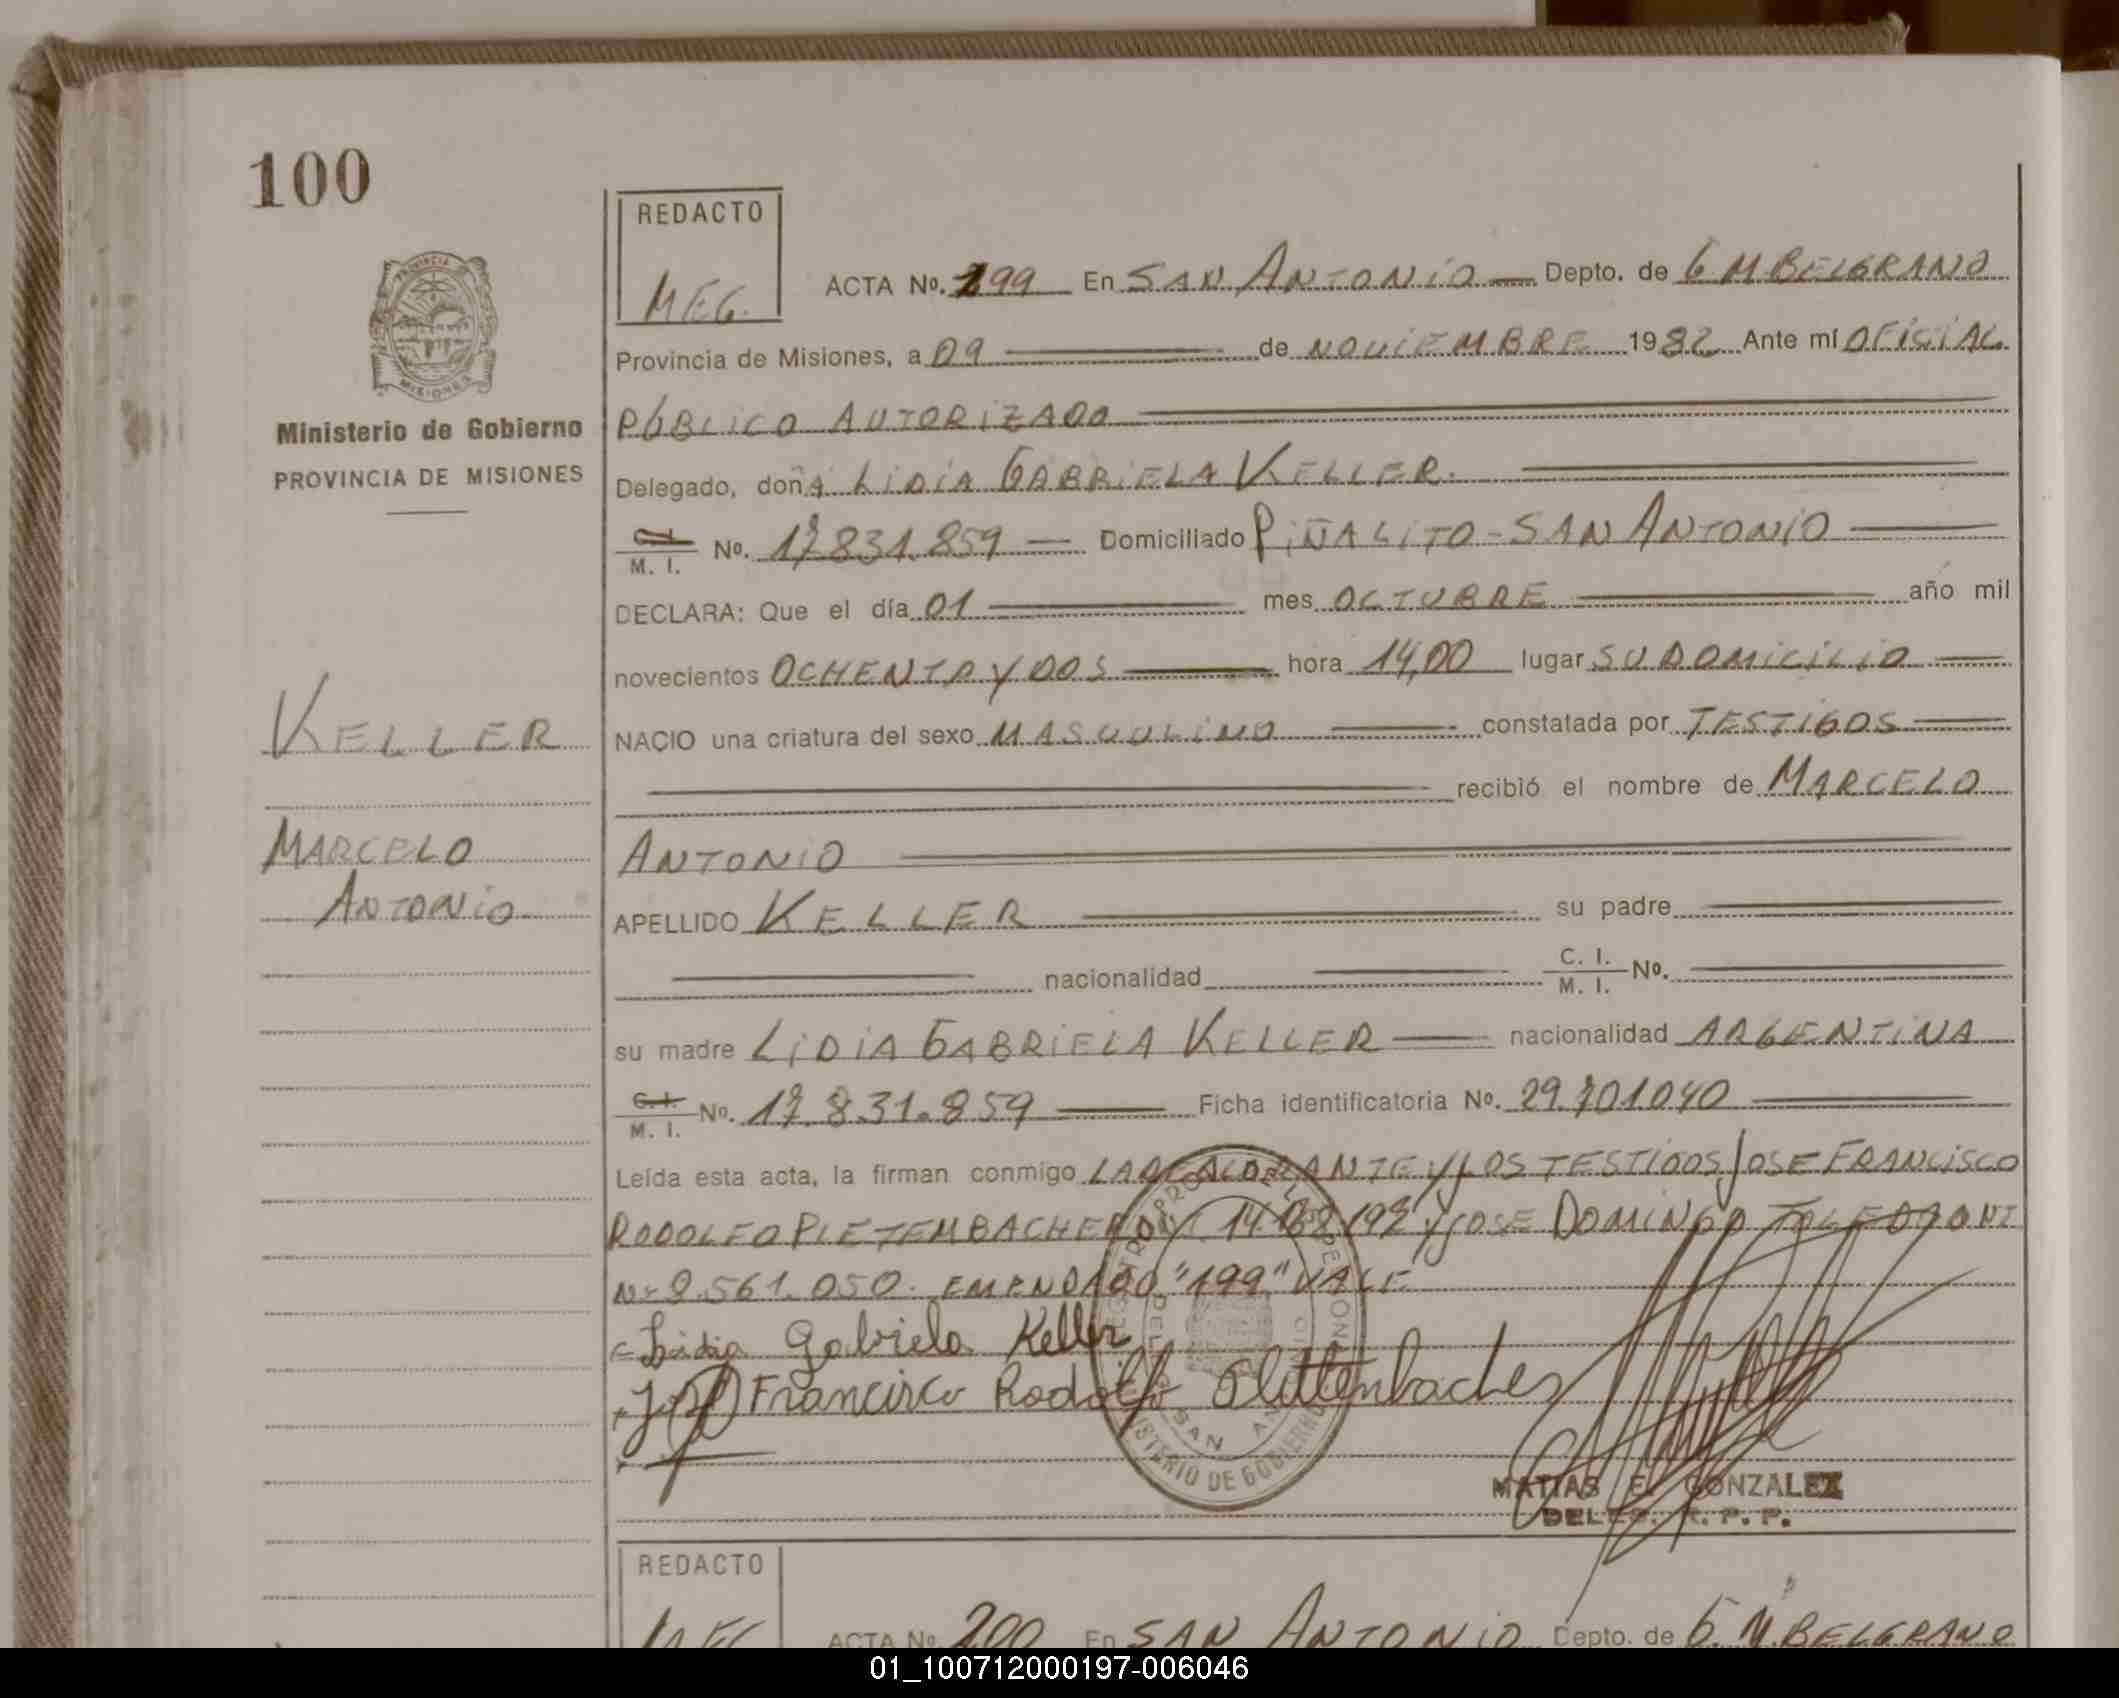 100
REDACTO
MEG.
ACTA No. 199 En SAN ANTONIO Depto. de G M BELGRANO
Provincia de Misiones, a 09 de NOVIEMBRE 1982 Ante mí OFICIAL
PÚBLICO AUTORIZADO
Delegado, doñA LIDIA GABRIELA KELLER.
C. I.
M. I. No. 17.831.859 Domiciliado PIÑALITO - SAN ANTONIO
DECLARA: Que el día 01 mes OCTUBRE año mil
novecientos OCHENTA Y DOS hora 14,00 lugar SU DOMICILIO
NACIO una criatura del sexo MASCULINO constatada por TESTIGOS
recibió el nombre de MARCELO
ANTONIO
APELLIDO KELLER su padre
nacionalidad C. I.
M. I. No.
su madre LIDIA GABRIELA KELLER nacionalidad ARGENTINA
C. I.
M. I. No. 17.831.859 Ficha identificatoria No. 29.701040
Leída esta acta, la firman conmigo LA DECLARANTE Y LOS TESTIGOS, JOSE FRANCISCO
RODOLFO PLETEMBACHER Y JOSE DOMINGO TOLEDO
Nº 8.561.050. EMENDADO "199" VALE
Lidia Gabriela Keller
José Francisco Rodolfo Plettenbacher
MATIAS E. GONZALEZ
DELEG. R. P. P.
PROVINCIA
MISIONES
Ministerio de Gobierno
PROVINCIA DE MISIONES
KELLER
MARCELO
ANTONIO
SAN AN
MINISTERIO DE GOBIERNO
REDACTO
MEG
ACTA No. 200 En SAN ANTONIO Depto. de G. M. BELGRANO
01_100712000197-006046